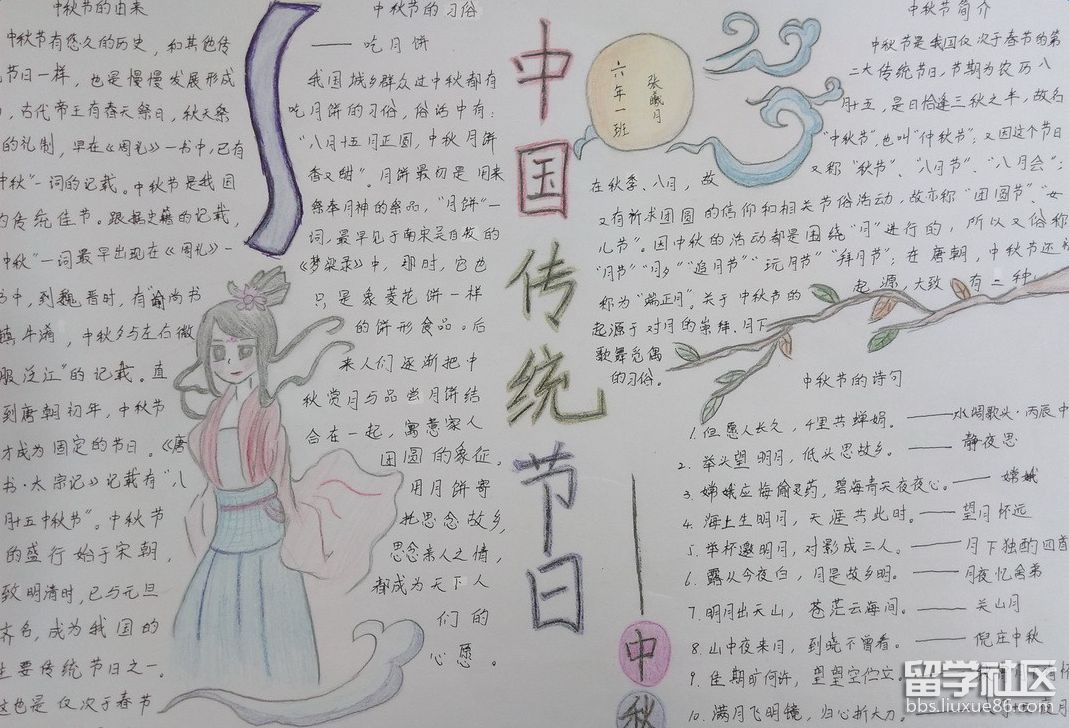 中秋节的由来
中秋节有悠久的历史，和其他传
节日一样，也是慢慢发展形成
古代帝王有春天祭日，秋天祭
的礼制，早在《周礼》一书中，已有
中秋"一词的记载。中秋节是我国
的传统佳节。跟据史籍的记载，
中秋"一词最早出现在《周礼》一
书中，到魏晋时，有"谕尚书
镇牛渚，中秋夕与左右微
服泛江"的记载。直
到唐朝初年，中秋节
才成为固定的节日。《唐
书·太宗记》记载有"八
月十五中秋节"。中秋节
的盛行始于宋朝，
致明清时，已与元旦
齐名，成为我国的
主要传统节日之一。
这也是仅次于春节
中秋节的习俗
——吃月饼
我国城乡群众过中秋都有
吃月饼的习俗，俗话中有：
"八月十五月正圆，中秋月饼
香又甜"。月饼最初是用来
祭奉月神的祭品，"月饼"一
词，最早见于南宋吴自牧的
《梦粱录》中，那时，它也
只是象菱花饼一样
的饼形食品。后
来人们逐渐把中
秋赏月与品尝月饼结
合在一起，寓意家人
团圆的象征。
用月饼寄
托思念故乡，
思念亲人之情，
都成为天下人
们的
心愿。
中国传统节日
——中秋
六年一班
张曦月
中秋节简介
中秋节是我国仅次于春节的第
二大传统节日，节期为农历八
月十五，是日恰逢三秋之半，故名
"中秋节"，也叫"仲秋节"，又因这个节日
在秋季、八月，故又称"秋节"、"八月节"、"八月会"；
又有祈求团圆的信仰和相关节俗活动，故亦称"团圆节"、"女
儿节"。因中秋的活动都是围绕"月"进行的，所以又俗称
"月节""月夕""追月节""玩月节""拜月节"；在唐朝，中秋节还
称为"端正月"。关于中秋节的起源，大致有二种：
起源于对月的崇拜、月下
歌舞觅偶
的习俗。
中秋节的诗句
1.但愿人长久，千里共婵娟。——水调歌头·丙辰中
2.举头望明月，低头思故乡。——静夜思
3.嫦娥应悔偷灵药，碧海青天夜夜心。——嫦娥
4.海上生明月，天涯共此时。——望月怀远
5.举杯邀明月，对影成三人。——月下独酌四首
6.露从今夜白，月是故乡明。——月夜忆舍弟
7.明月出天山，苍茫云海间。——关山月
8.山中夜来月，到晓不曾看。——倪庄中秋
9.佳期旷何许，望望空伫立。
10.满月飞明镜，归心折大刀。
留学社区
bbs.liuxue86.com